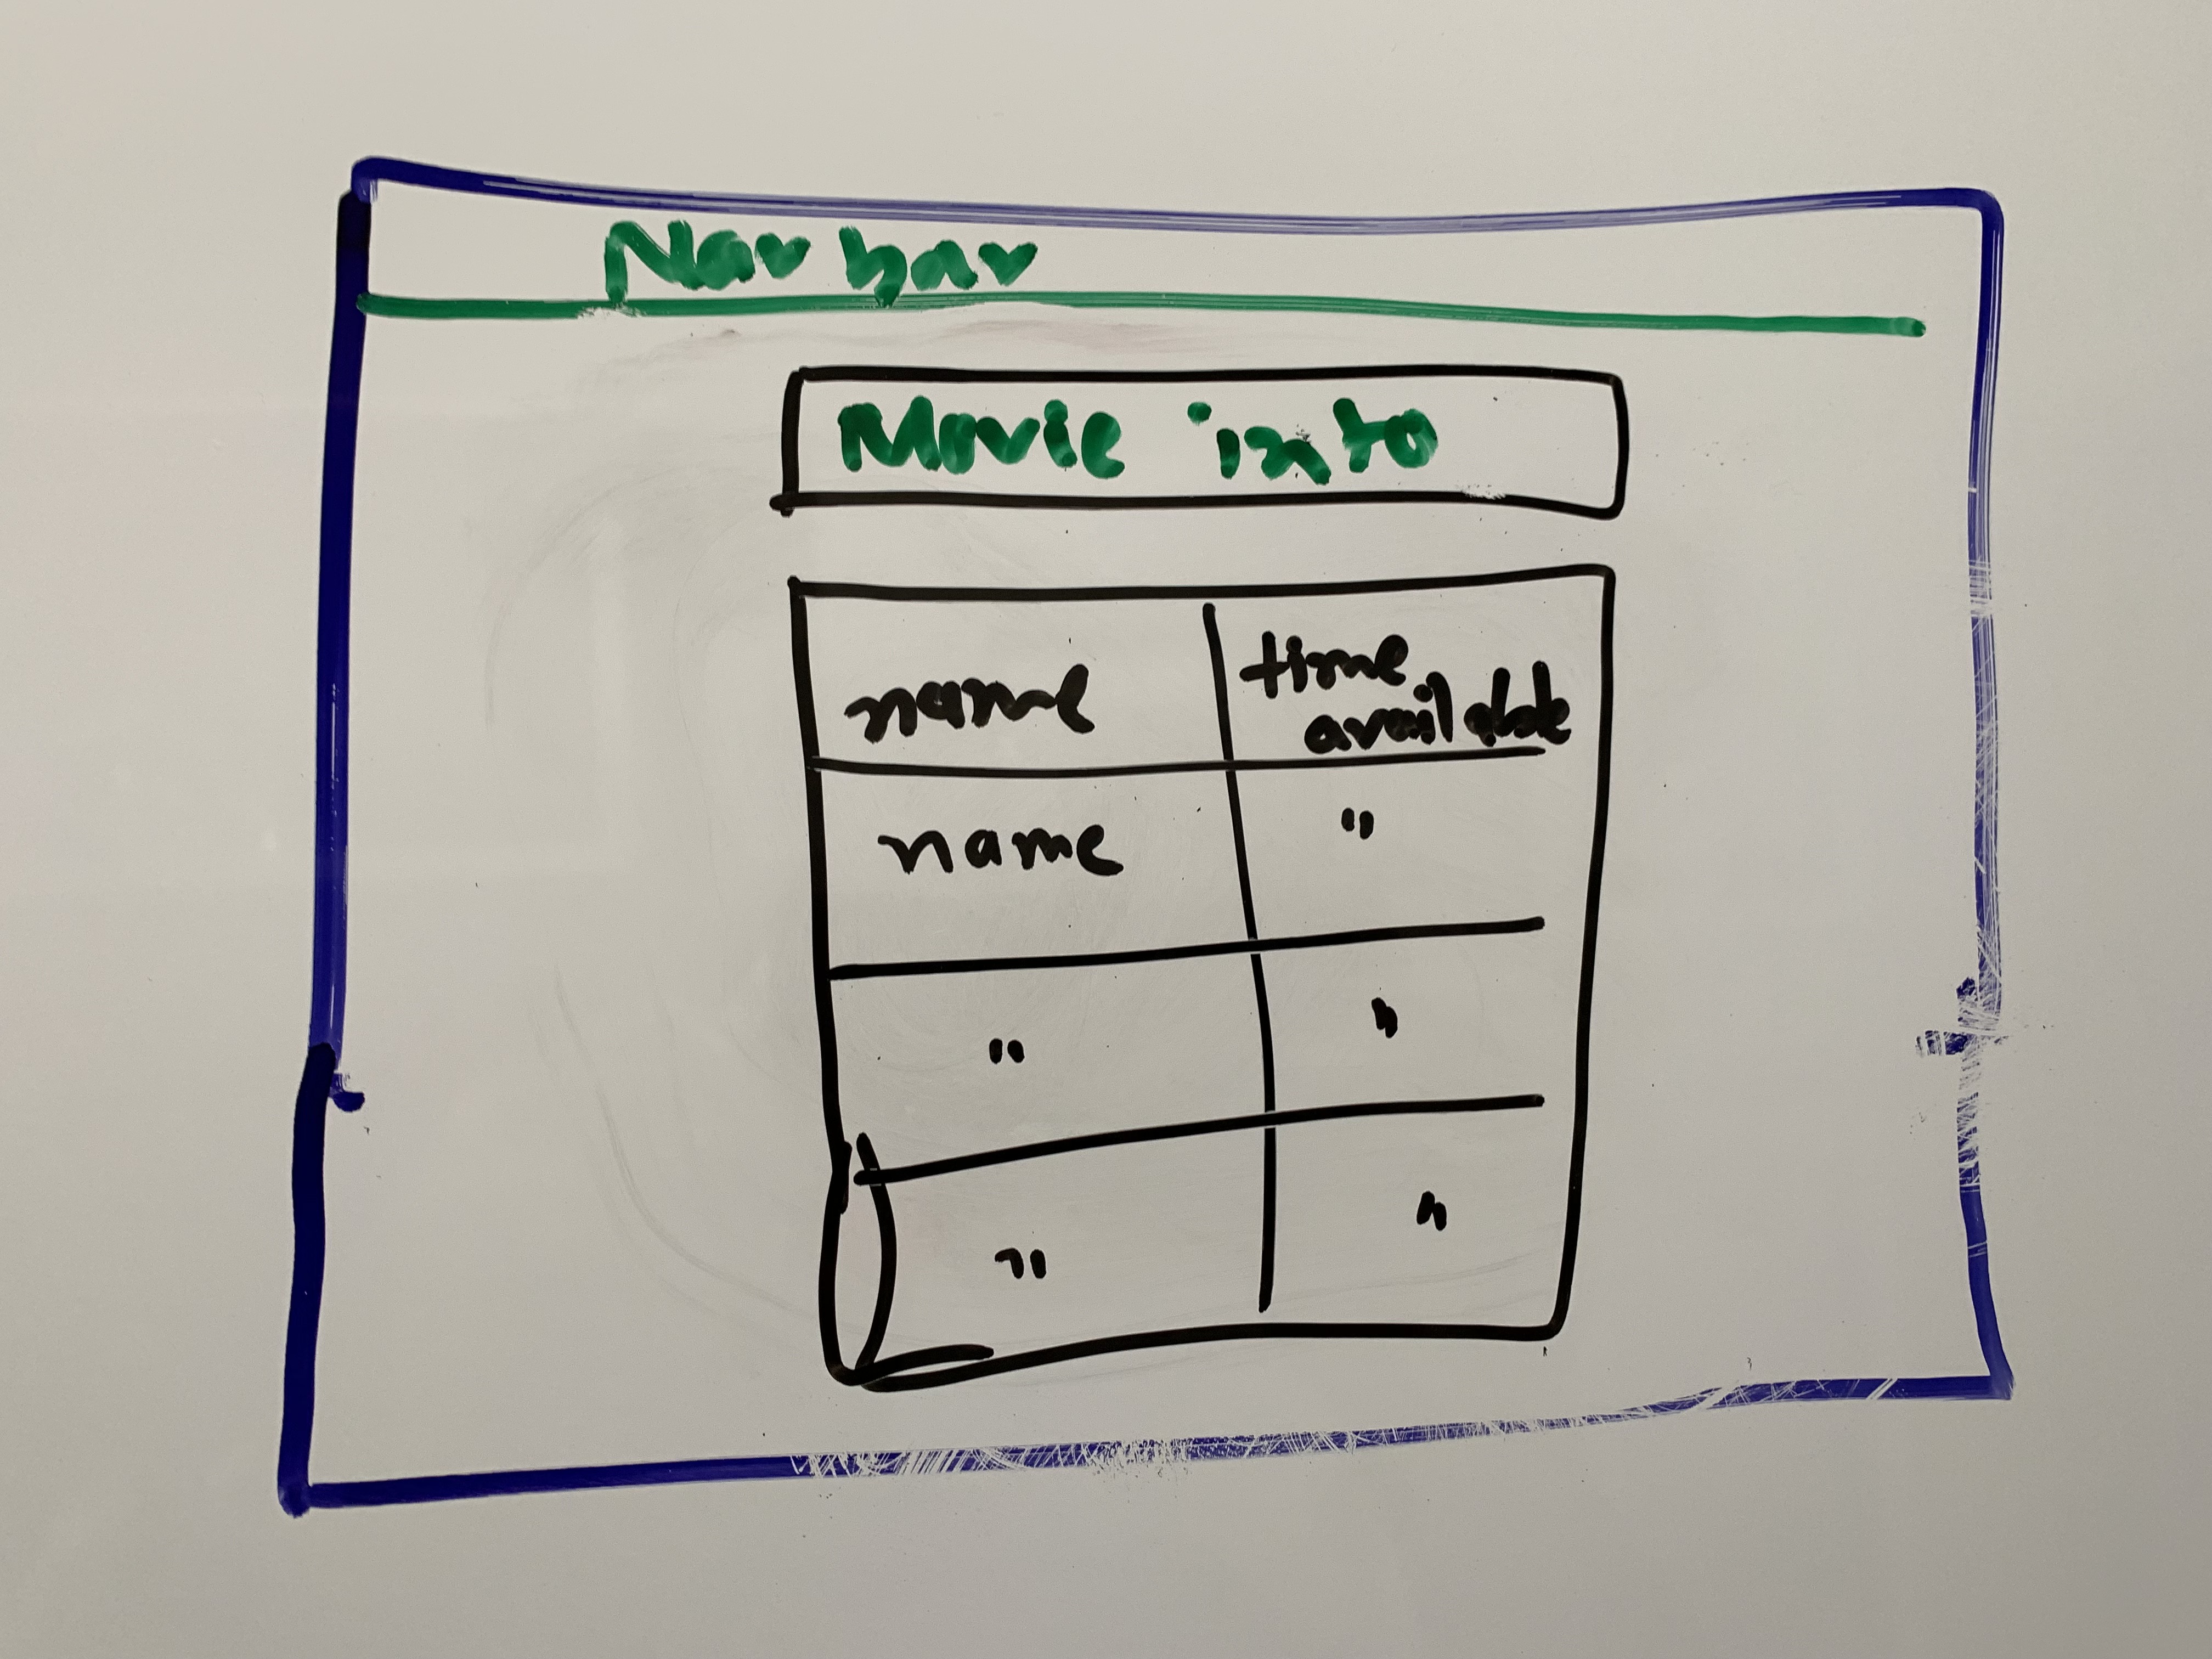 Nav bar
Movie info
name
time
available
name "
" "
" "